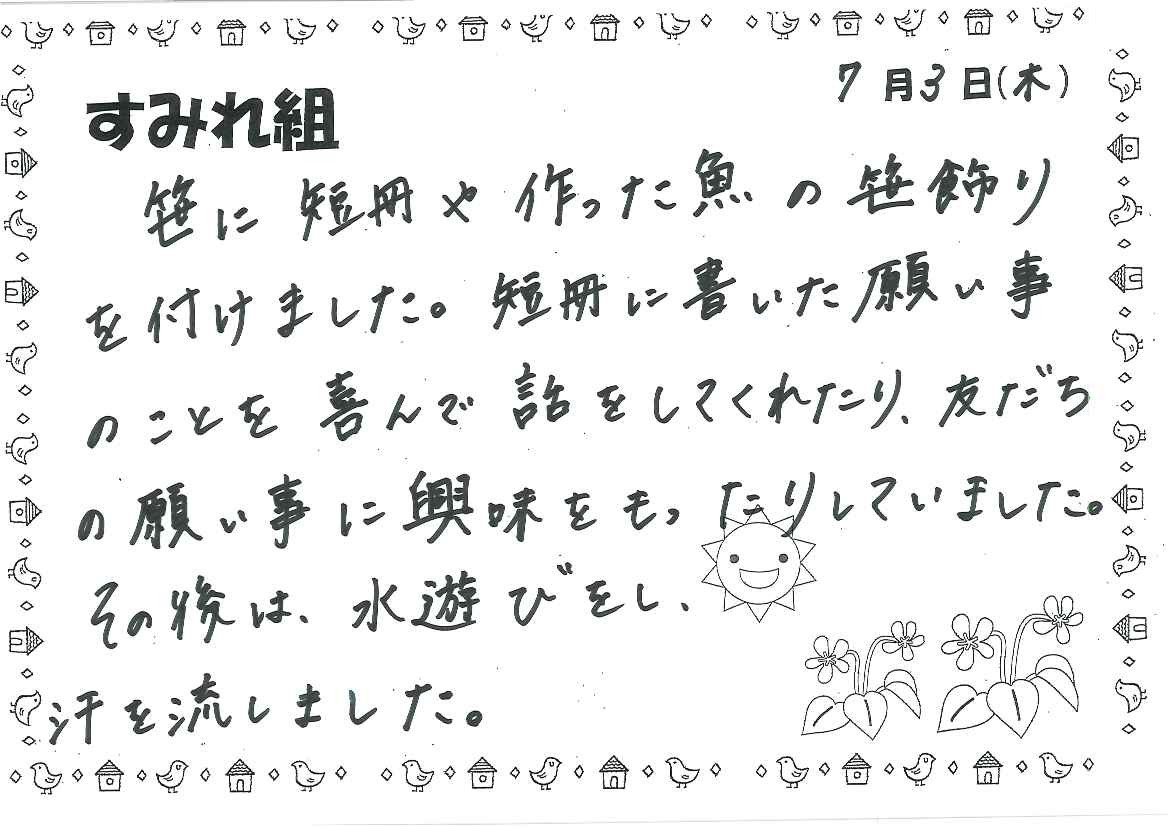 7月3日(木)
すみれ組
笹に短冊や作った魚の笹飾り
を付けました。短冊に書いた願い事
のことを喜んで話をしてくれたり、友だち
の願い事に興味をもったりしていました。
その後は、水遊びをし、
汗を流しました。